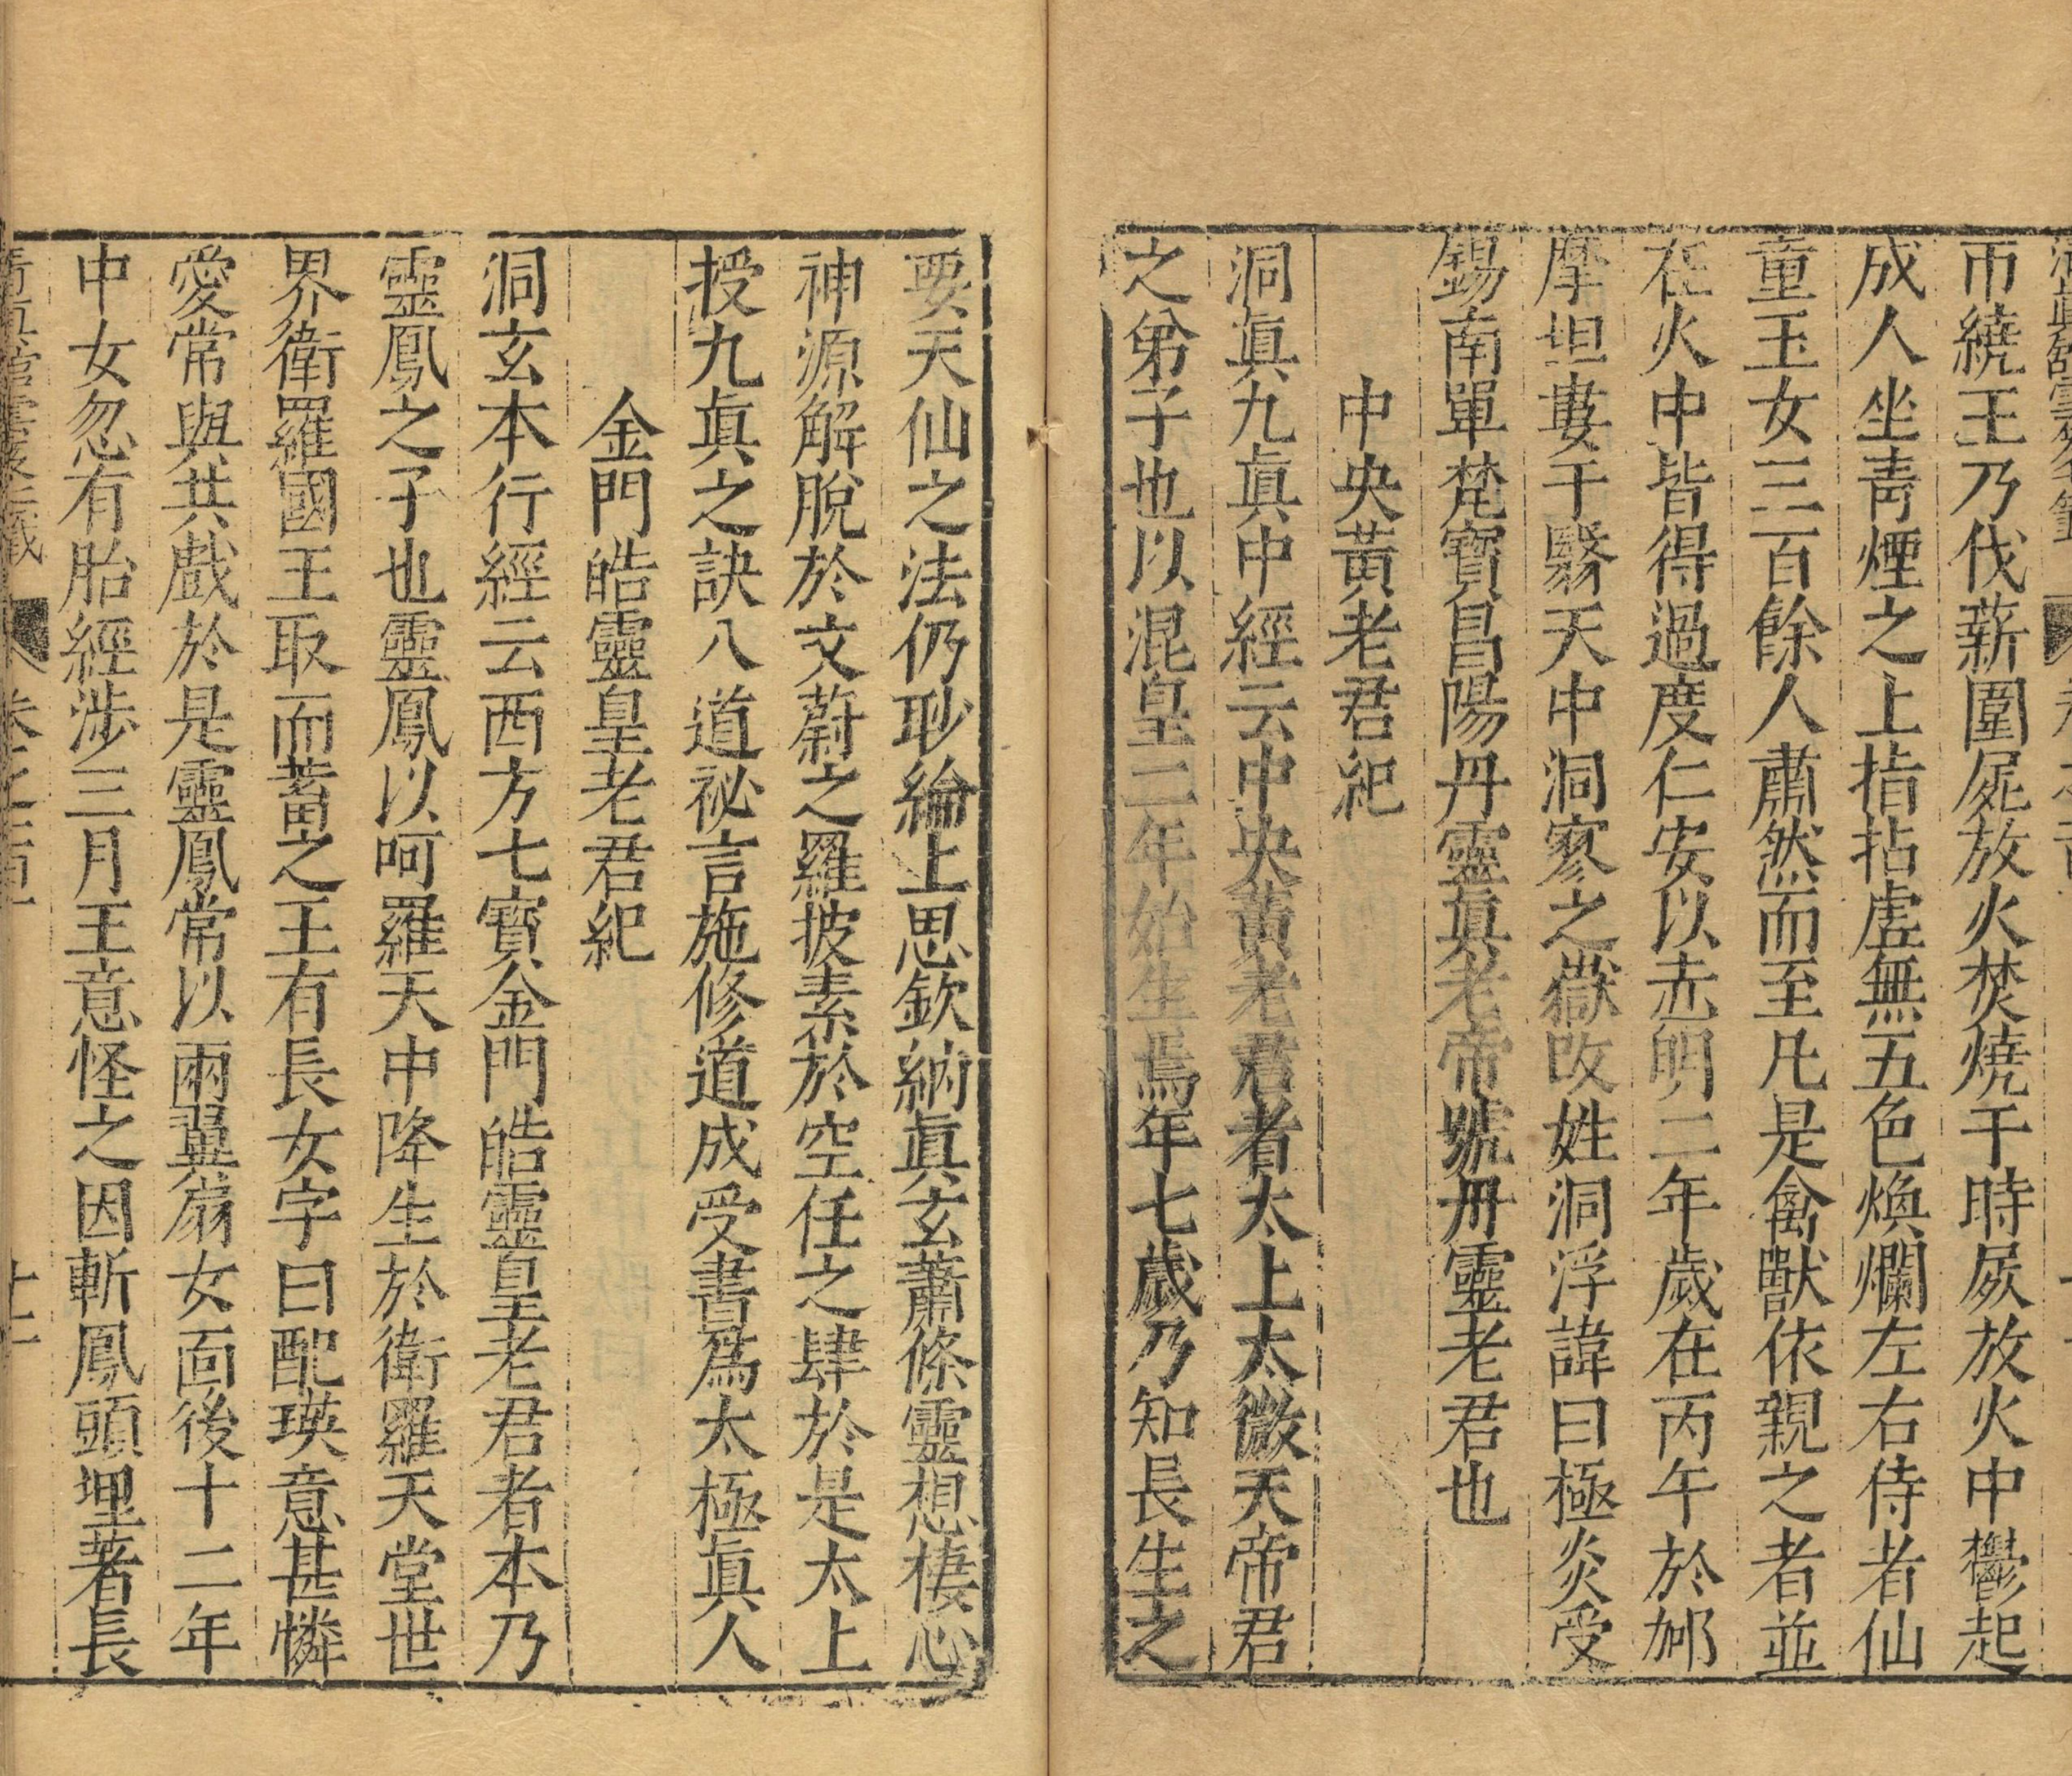 帀繞王乃伐薪圍屍放火焚燒于時屍放火中鬱起
成人坐靑煙之上指拈虛無五色煥爛左右侍者仙
童玉女三百餘人肅然而至凡是禽獸依親之者並
在火中皆得過度仁安以赤明二年歲在丙午於𨚗
摩坦婁于翳天中洞寥之嶽改姓洞浮諱曰極炎受
錫南單梵寶昌陽丹靈眞老帝號丹靈老君也
中央黃老君紀
洞眞九眞中經云中央黃老君者太上太微天帝君
之弟子也以混皇二年始生焉年七歲乃知長生之
要天仙之法仍眇綸上思欽納眞玄蕭條靈想棲心
神源解脫於文蔚之羅披素於空任之肆於是太上
授九眞之訣八道祕言施修道成受書爲太極眞人
金門皓靈皇老君紀
洞玄本行經云西方七寶金門皓靈皇老君者本乃
靈鳳之子也靈鳳以呵羅天中降生於衛羅天堂世
界衛羅國王取而蓄之王有長女字曰配瑛意甚憐
愛常與共戲於是靈鳳常以兩翼扇女面後十二年
中女忽有胎經涉三月王意怪之因斬鳳頭埋著長
十二